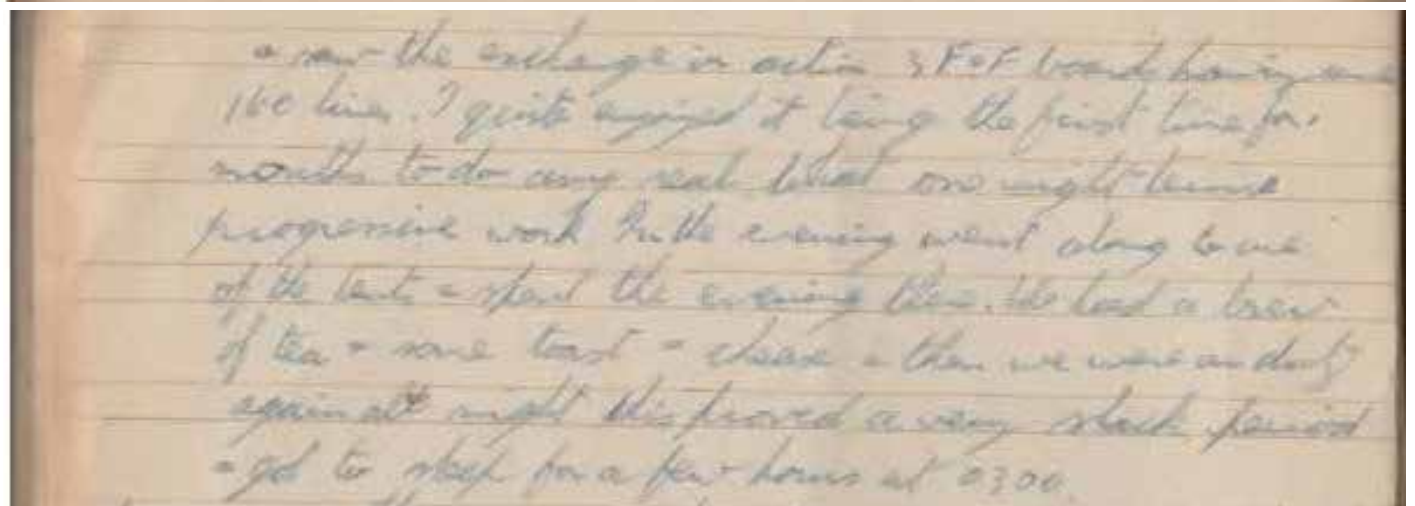 & saw the exchange in action 3 F&F boards having over
160 lines. I quite enjoyed it being the first time for
months to do any real what one might term
progressive work In the evening went along to one
of the tents & spent the evening there. We had a brew
of tea & some toast & cheese & then we were on duty
again all night this proved a very slack period
& got to sleep for a few hours at 0300.